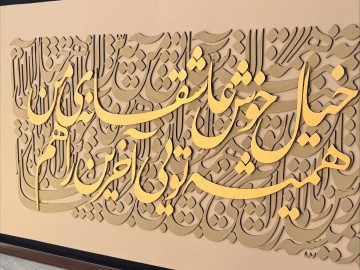 خیال خوش عاشقانه‌ی من
همیشه تویی آخرین راهم